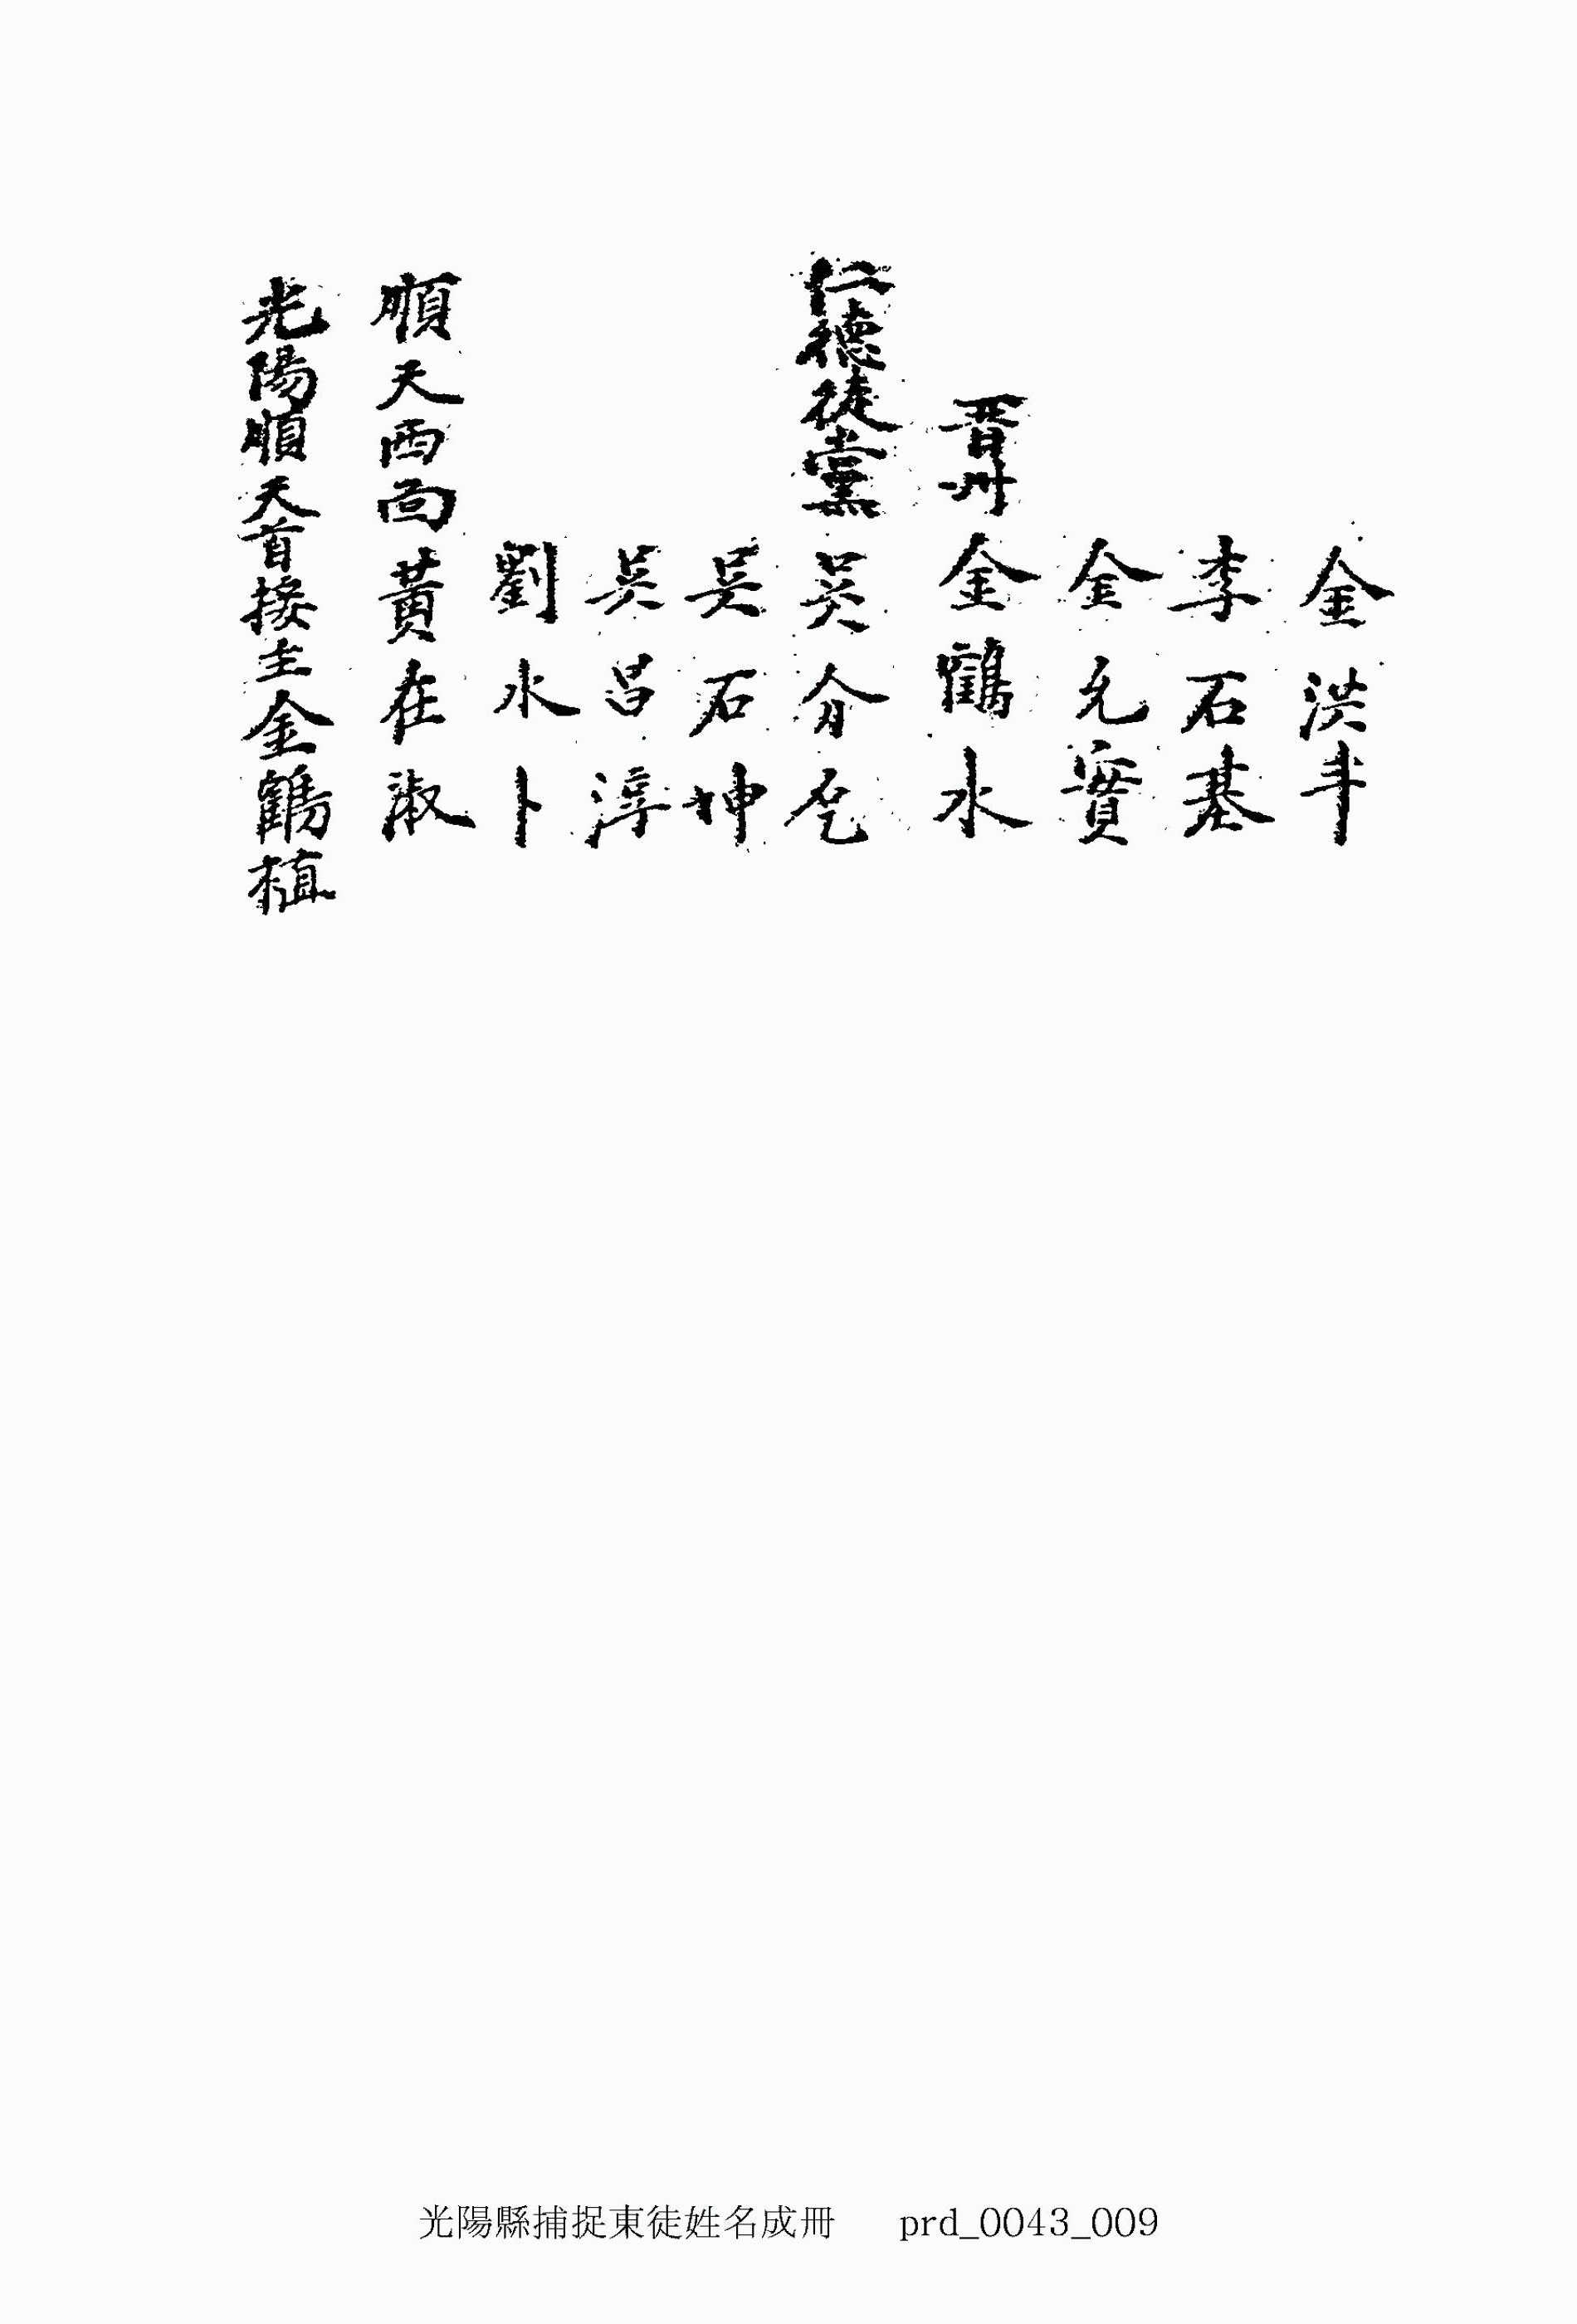 金洪斗
李石基
金允實
晋州 金鶴水
仁德徒黨 吳介
吳石坤
吳昌淳
劉水卜
順天西面黃在淑
光陽順天首接主金鶴植
光陽縣捕捉東徒姓名成冊 prd_0043_009